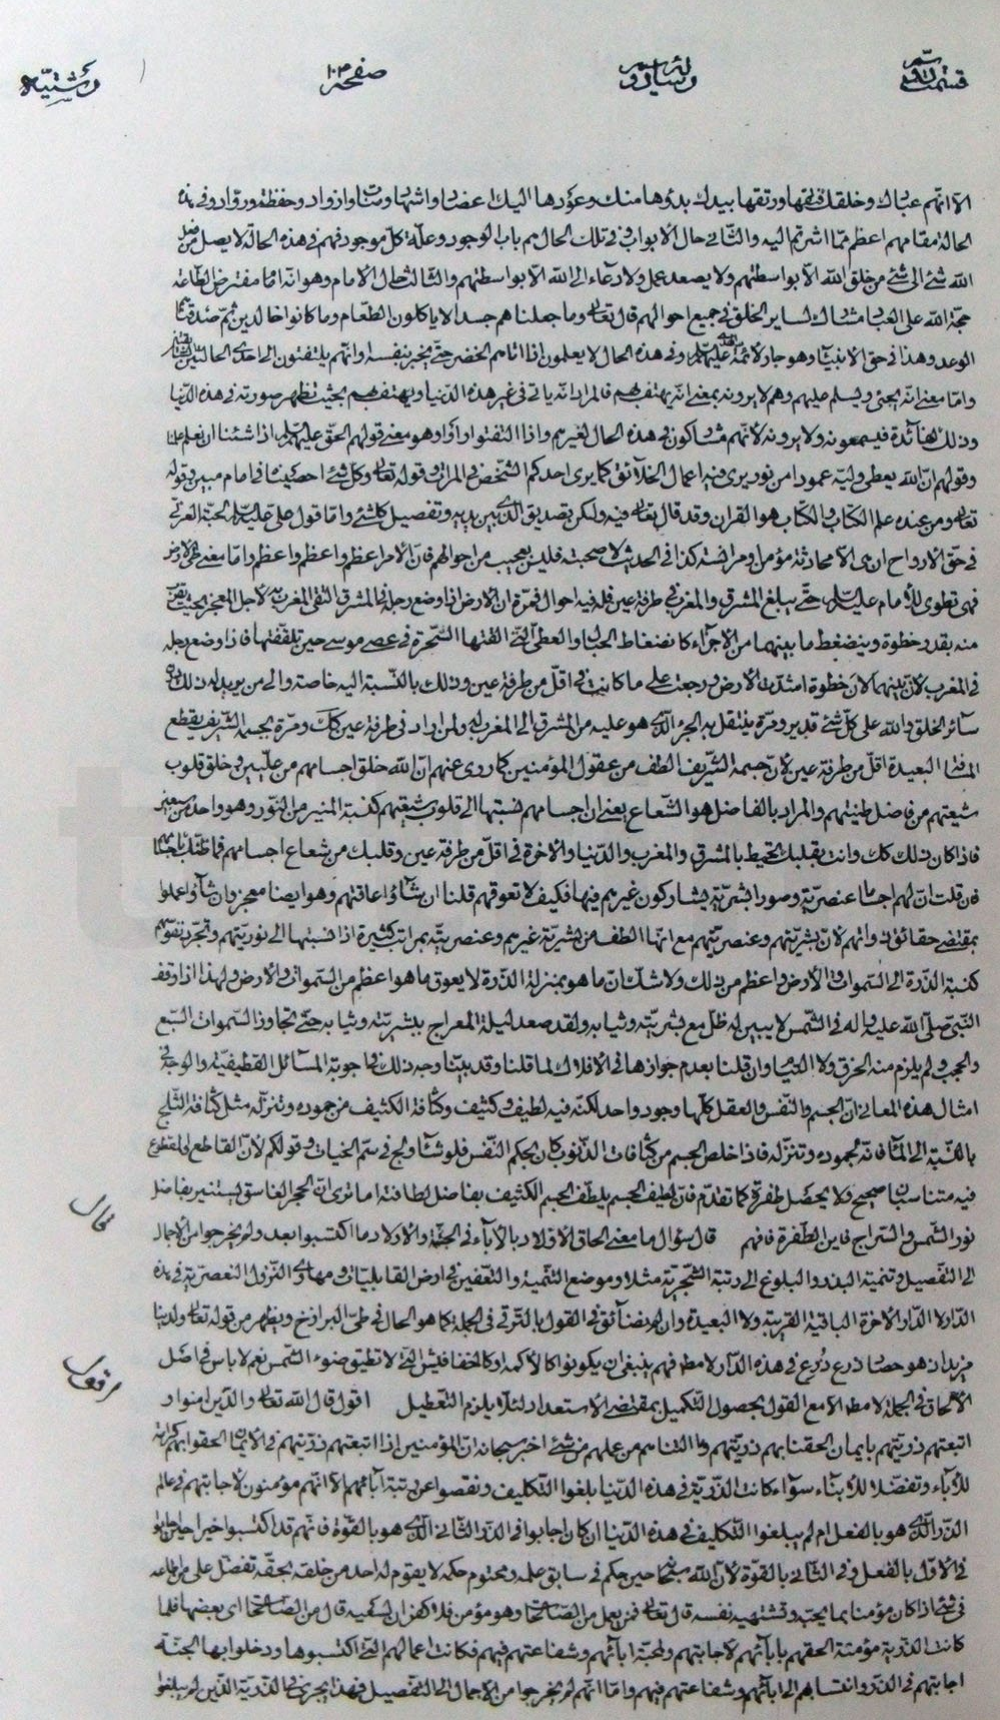 قسمت رسالة صفحة ١٠٣ رشتيّه
الا انهم عبادك وخلقك فتقها ورتقها بيدك بدؤها منك وعودها اليك اعضاد واشهاد ومناة واذواد وحفظة ورواد وفي هذه
الحالة مقامهم اعظم مما اشرتم اليه والثاني حال الابواب وفي تلك الحال هم باب الوجود وعلة كل موجود فهم في هذه الحالة لا يصل من
الله شئ الى شئ من خلق الله الا بواسطتهم ولا يصعد عمل ولا دعاء الى الله الا بواسطتهم والثالث حال الامام وهو انه امام مفترض الطاعة
حجة الله على العباد لساير الخلق في جميع احوالهم قال تعالى وما جعلناهم جسدا لا ياكلون الطعام وما كانوا خالدين ثم صدقناهم
الوعد وهذا في حق الانبياء وهو جار لائمة عليهم السلام وفي هذه الحال لا يعلمون اذا اتاهم الخضر حتى يخبر بنفسه وانهم يلتفتون الى احدى الحالتين
واما معنى انه يجئ ويسلم عليهم وهم لا يرونه بمعنى انه يهتف بهم فالمراد انه ياتي في غير هذه الدنيا ويهتف بهم بحيث تظهر صورته في هذه الدنيا
وذلك لفائدة فيسمعونه ولا يرونه لانهم مشاركون في هذه الحال لغيرهم واذا التفتوا اراوه وهو معنى قولهم الحق عليهم السلام اذا شئنا ان نعلم علمنا
وقولهم ان الله يعطي وليه عمودا من نور يرى فيه اعمال الخلائق كما يرى احدكم الشخص في المرآة وقوله تعالى وكل شئ احصيناه في امام مبين وقوله
تعالى ومن عنده علم الكتاب والكتاب هو القران وقد قال تعالى فيه ولكن تصديق الذي بين يديه وتفصيل كل شئ واما قول علي عليه السلام لحبة العرني
في حق الارواح ان هي الا محادثة مؤمن او مؤانسته كذا في الحديث لا صحبته فليس بعجيب من احوالهم فان الامر اعظم واعظم واعظم واما معنى طي الارض
فهي تطوى للامام عليه السلام حتى يبلغ المشرق والمغرب في طرفة عين فله فيه احوال فمرة ان الارض اذا وضع رجله في المشرق التقى المغرب به لاجل المعجز بحيث يقرب
منه بقدر خطوة وينضغط ما بينهما من الاجزاء كانضغاط الحبال والعصي التي القتها السحرة في عصى موسى حين تلقفتها فاذا وضع رجله
في المغرب لان بينهما الان خطوة امتدت الارض ورجعت على ما كانت في اقل من طرفة عين وذلك بالنسبة اليه خاصة والى من يريد له ذلك دون
سائر الخلق والله على كل شئ قدير ومرة ينتقل به الجزء الذي هو عليه من المشرق الى المغرب له ولمن اراد في طرفة عين كذلك ومرة بجسمه الشريف يقطع
المسافة البعيدة اقل من طرفة عين لان جسمه الشريف الطف من عقول المؤمنين كما روى عنهم ان الله خلق اجسامهم من عليين وخلق قلوب
شيعتهم من فاضل طينتهم والمراد بالفاضل هو الشعاع يعني ان اجسامهم نسبتها الى قلوب شيعتهم كنسبة المنير من النور وهو واحد من سبعين
فاذا كان ذلك كذلك وانت بقلبك تحيط بالمشرق والمغرب والدنيا والاخرة في اقل من طرفة عين وقلبك من شعاع اجسامهم فما ظنك باجسامهم
فان قلت ان لهم اجساما عنصرية وصورا بشرية يشاركون غيرهم فيها فكيف لا تعوقهم قلنا ان شاؤا اعاقتهم وهو ايضا معجز وان شاؤا عملوا
بمقتضى حقائق ذواتهم لان بشريتهم وعنصريتهم مع انها الطف من بشرية غيرهم وعنصريته بمراتب كثيرة اذا نسبتها الى نوريتهم وتجرد نفوسهم
كنسبة الذرة الى السموات والارض واعظم من ذلك ولا شك ان ما هو بمنزلة الذرة لا يعوق ما هو اعظم من السموات والارض ولهذا اذا وقف
النبي صلى الله عليه واله في الشمس لا يبين له ظل مع بشريته وثيابه ولقد صعد ليلة المعراج ببشريته وثيابه حتى تجاوز السموات السبع
والحجب ولم يلزم منه الخرق ولا الالتيام وان قلنا بعدم جوازها في الافلاك لما قلنا وقد بينا وجه ذلك في اجوبة المسائل القطيفية والوجه في
امثال هذه المعاني ان الجسم والنفس والعقل كلها وجود واحد لكنه فيه لطيف وكثيف وكثافة الكثيف من جموده وتنزله مثل كثافة الثلج
بالنسبة الى الماء فانه لجموده وتنزله فاذا خلص الجسم من كثافات الذنوب كان بحكم النفس فلو شاء ولج في سم الخياط وقولكم لان القاطع والمقطوع
فيه متناسبان صحيح ولا يحصل طفرة كما تقدم فان لطيف الجسم يلطف الجسم الكثيف بفاضل لطافته اما ترى ان الحجر الغاسق يستنير بفاضل
نور الشمس والسراج فاين الطفرة فافهم قال سؤال ما معنى الحاق الاولاد بالآباء في الجنة والاولاد ما اكتسبوا بعد ولم يخرجوا من الاجمال
الى التفصيل وتنمية البذر والبلوغ الى رتبة الشجرية مثلا وموضع التنمية والتعفين في ارض القابليات ومهاوي النزول العنصرية في هذه
الدار لا الدار الاخرة الباقية القريبة ولا البعيدة وان لم نضائق في القول بالترقي في الجملة كما هو الحال في طي البرازخ ويظهر من قوله تعالى ولدينا
مزيد ان هو حصاد زرع زرع في هذه الدار لا مطلقا فهم ينبغي ان يكونوا كالاكمه او كالخفافيش التي لا تطيق ضوء الشمس نعم لا باس في اصل
الالحاق في الجملة لا مطلقا الا مع القول بحصول التكميل بمقتضى الاستعداد لئلا يلزم التعطيل اقول قال الله تعالى والذين امنوا و
اتبعتهم ذريتهم بايمان الحقنا بهم ذريتهم وما التناهم من عملهم من شئ اخبر سبحانه ان المؤمنين اذا اتبعتهم ذريتهم في الايمان الحقوا بهم كرامة
للآباء وتفضلا للابناء سواء كانت الذرية في هذه الدنيا بلغوا التكليف ونقصوا عن رتبة آبائهم الا انهم مؤمنون لاجابتهم في عالم
الذر الذي هو بالفعل ام لم يبلغوا التكليف في هذه الدنيا ان كان اجابوا في الذر الثاني الذي هو بالقوة فانهم قد اكتسبوا خيرا حين اجابوا
في الاول بالفعل وفي الثاني بالقوة لان الله سبحانه حين حكم في سابق علمه ومحتوم حكمه لا يقوم له احد من خلقه بحقه تفضل على من اطاعه
في شئ اذا كان مؤمنا بما يحبه وتشتهيه نفسه قال تعالى فمن يعمل من الصالحات وهو مؤمن فلا كفران لسعيه قال من الصالحات اي بعضها فلما
كانت الذرية مؤمنة الحقهم بابائهم لاجابتهم ولمحبة ابائهم وشفاعتهم فيهم فكانت اعمالهم التي اكتسبوها ودخلوا بها الجنة
اجابتهم في الذر وانتسابهم الى ابائهم وشفاعتهم فيهم واما انهم لم يخرجوا من الاجمال الى التفصيل فهذا يجري في الذرية الذين لم يبلغوا